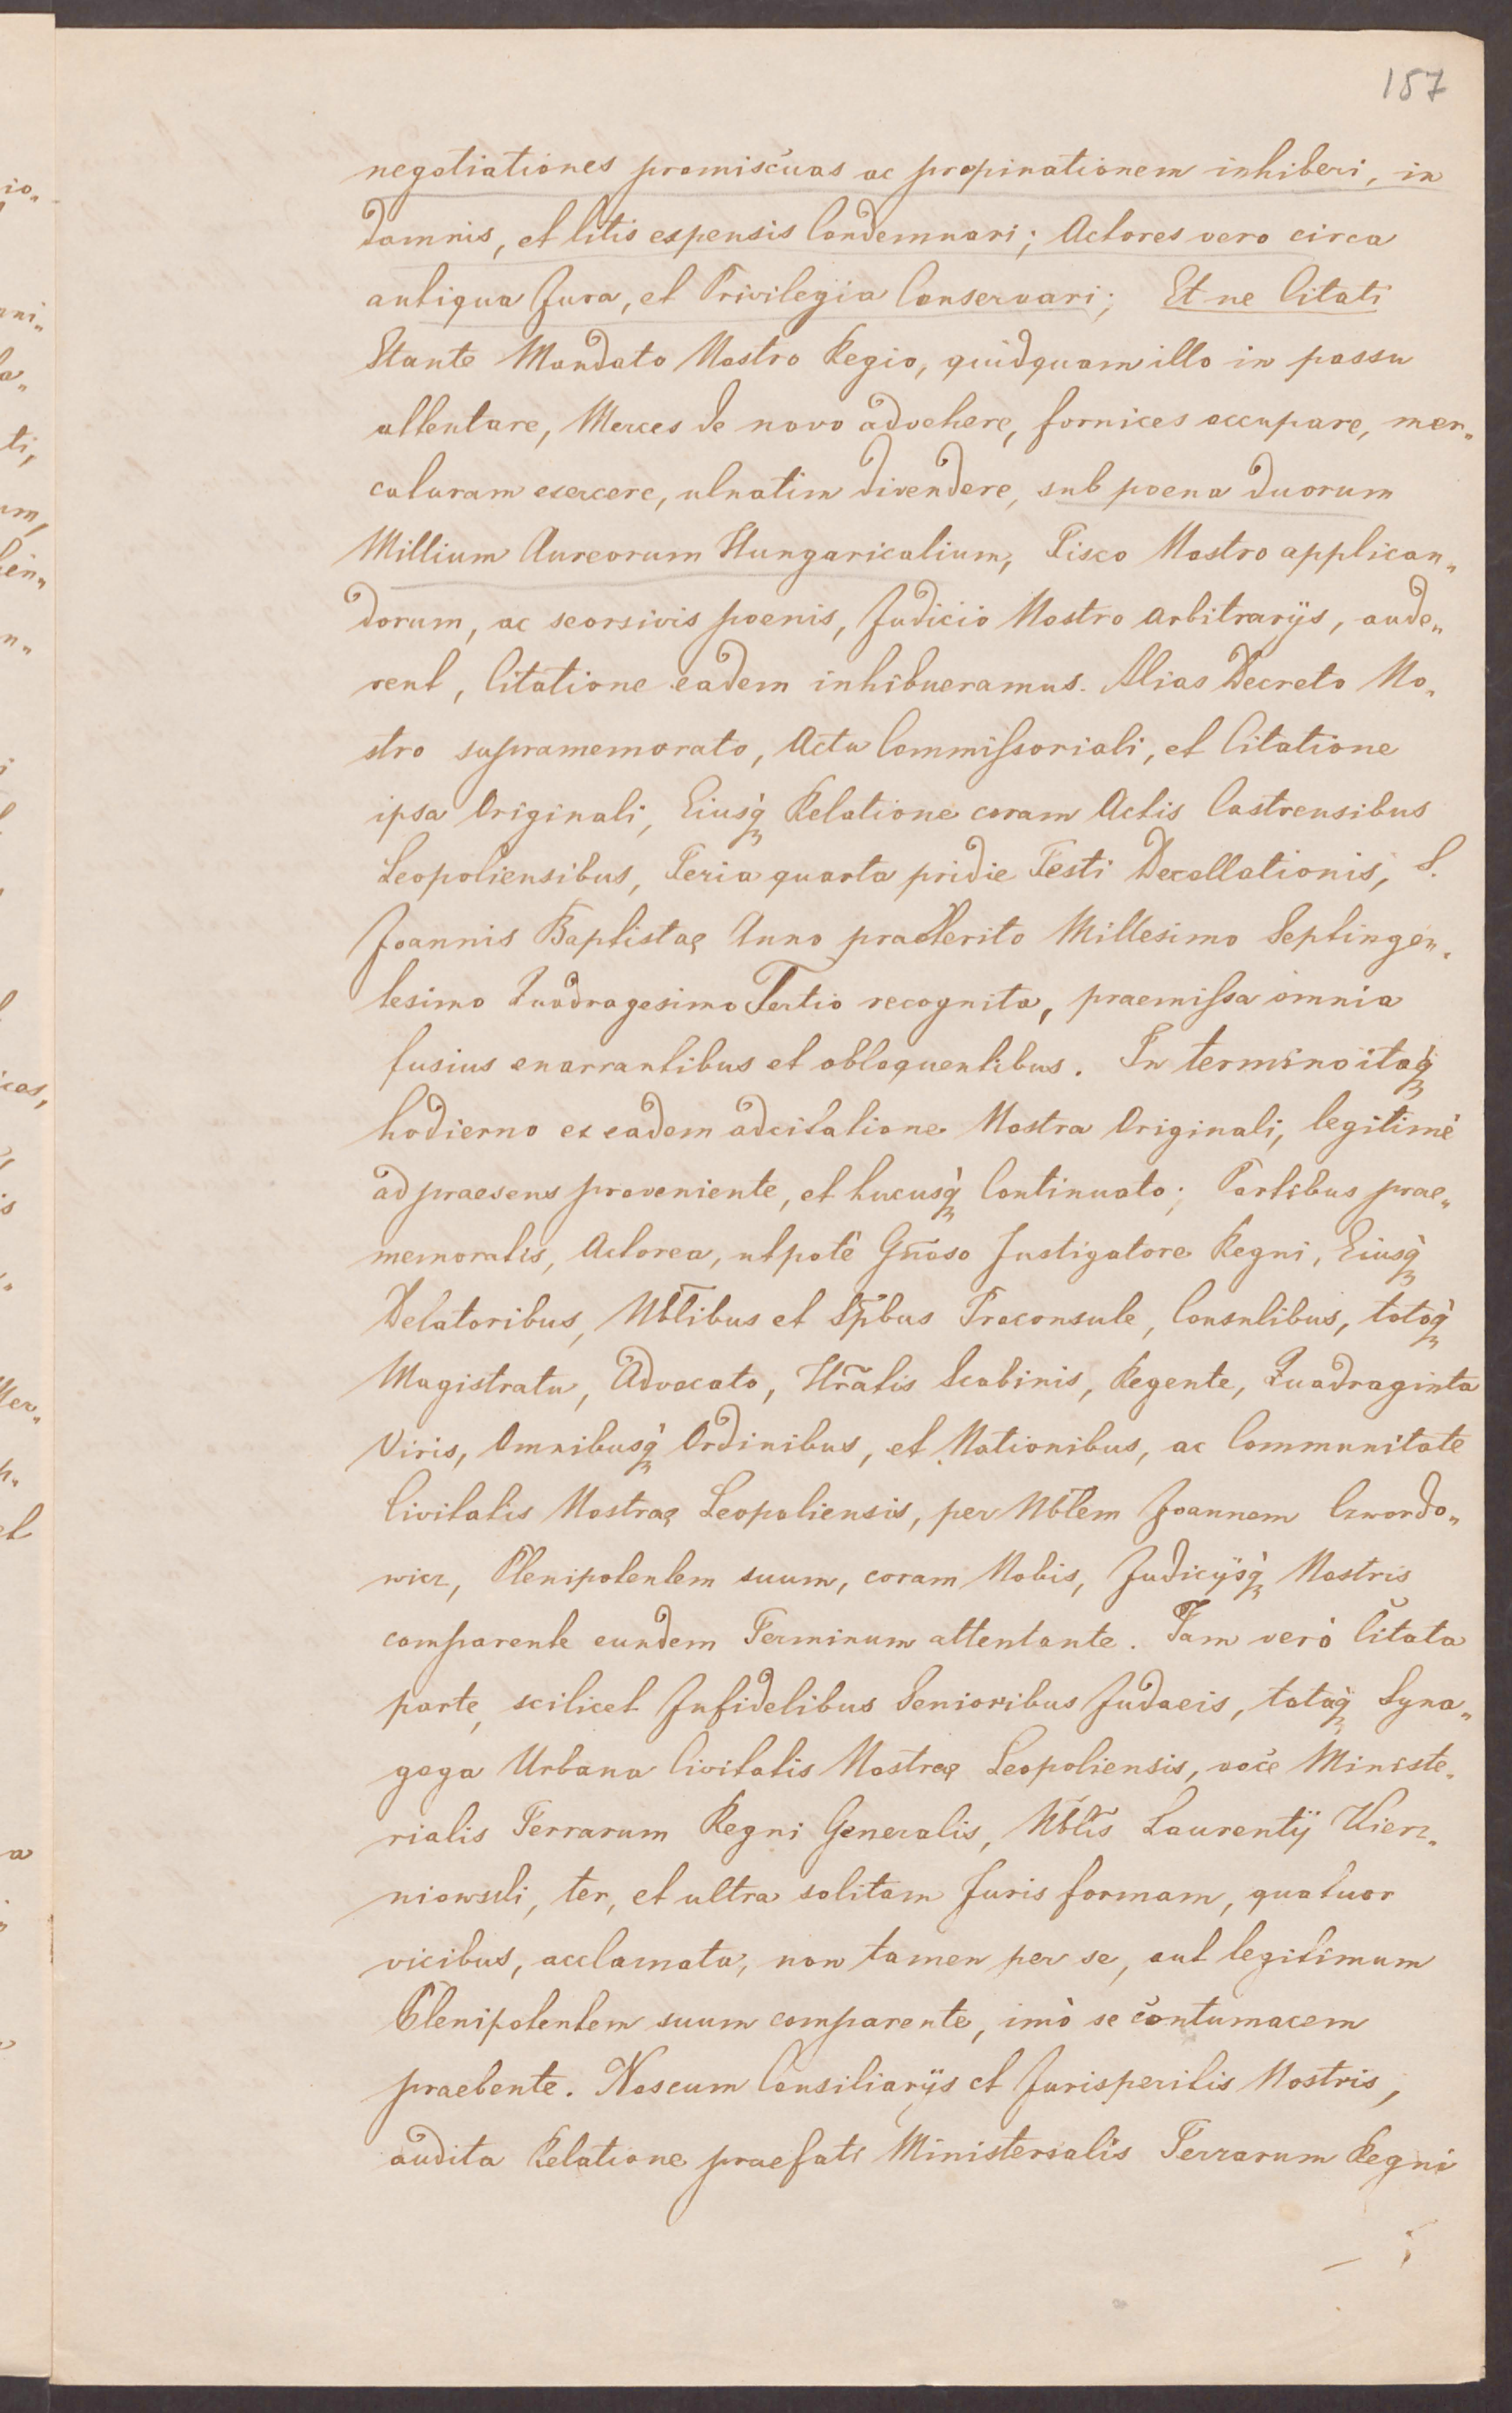 187
negotiationes promiscuas ac propinationem inhiberi, in
damnis, et litis expensis Condemnari; Actores vero circa
antiqua Jura, et Privilegia Conservari; Et ne Citati
Stante Mandato Nostro Regio, quidquam illo in passu
attentare, Merces de novo advehere, fornices occupare, mer„
caturam exercere, ulnatim divendere, sub poena duorum
Millium Aureorum Hungaricalium, Fisco Nostro applican„
dorum, ac seorsivis poenis, Judicio Nostro arbitrarijs, aude„
rent, Citatione eadem inhibueramus. Alias Decreto No„
stro supramemorato, Actu Commissoriali, et Citatione
ipsa Originali, Eiusq̀ Relatione coram Actis Castrensibus
Leopoliensibus, Feria quarta pridie Festi Decollationis, S.
Joannis Baptistae Anno praeterito Millesimo Septingen„
tesimo Quadragesimo Tertio recognita, praemissa omnia
fusius enarrantibus et obloquentibus. In termino itaq̀
hodierno ex eadem adcitatione Nostra Originali, legitimè
ad praesens proveniente, et hucusq̀ Continuato; Partibus prae„
memoratis, Actorea, utpotè Gñoso Instigatore Regni, Eiusq̀
Delatoribus, Nb̃libus et Sp̃bus Proconsule, Consulibus, totoq̀
Magistratu, Advocato, Hr̃atis Scabinis, Regente, Quadraginta
Viris, Omnibusq̀ Ordinibus, et Nationibus, ac Communitate
Civitatis Nostrae Leopoliensis, per Nb̃lem Joannem Czwordo„
wicz, Plenipotentem suum, coram Nobis, Judicijsq̀ Nostris
comparente eundem Terminum attentante. Tam verò Citata
parte, scilicet Infidelibus Senioribus Judaeis, totaq̀ Syna„
goga Urbana Civitatis Nostrae Leopoliensis, voce Ministe„
rialis Terrarum Regni Generalis, Nb̃lis Laurentij Wierz„
niowski, ter, et ultra solitam Juris formam, quatuor
vicibus, acclamata, non tamen per se, aut legitimum
Plenipotentem suum comparente, imò se contumacem
praebente. Nos cum Consiliarijs et Jurisperitis Nostris,
audita Relatione praefati Ministerialis Terrarum Regni